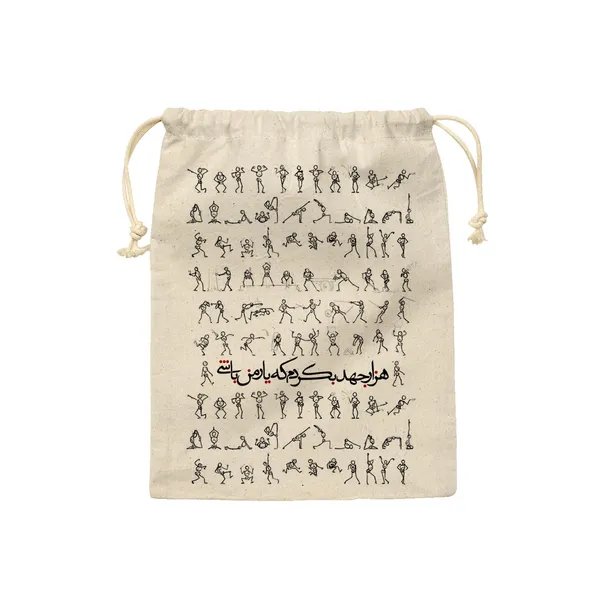 هزار جهد بکردم که یار من باشی